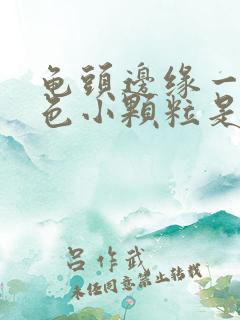 龟頭邊缘一
色小顆粒是
吕作武
未任同意禁止转载